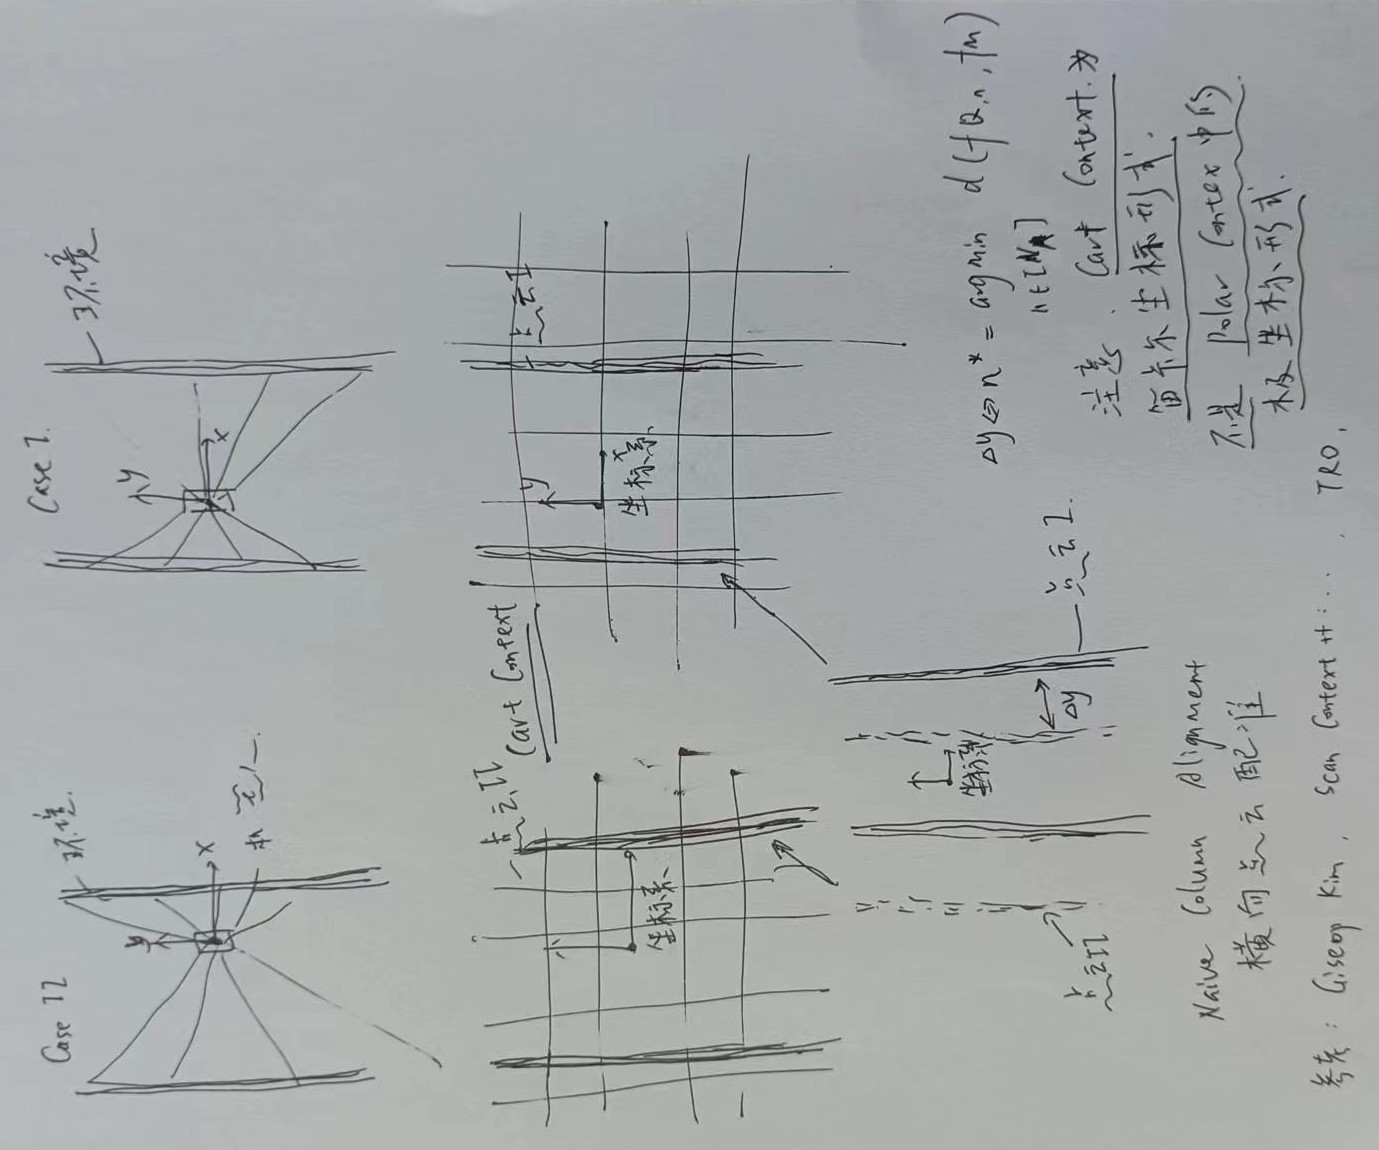 Case II
Case I.
环境.
环境
y
x
y
x
点云II
Cart Context
点云I
坐标系
y
x
坐标系
Δy
点云I.
坐标系
点云II
Δy ⇔ n* = argmin d(fQ,n, fM)
n∈[NA]
注意. Cart Context. 为
笛卡尔坐标形式.
不是 Polar Contex 中的
极坐标形式.
Naive Column Alignment
横向点云配准
参考: Giseop Kim, Scan Context++: ... . TRO,